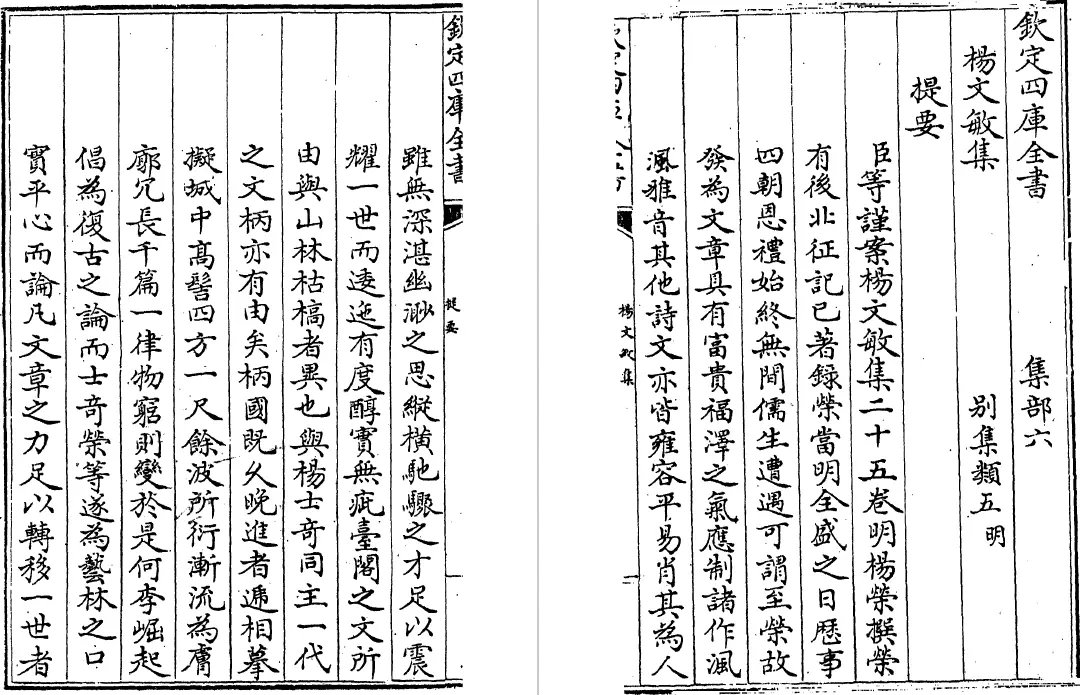 欽定四庫全書　集部六
楊文敏集　別集類五明
提要
臣等謹案楊文敏集二十五卷明楊榮撰榮
有後北征記已著録榮當明全盛之日歴事
四朝恩禮始終無間儒生遭遇可謂至榮故
發為文章具有富貴福澤之氣應制諸作渢
渢雅音其他詩文亦皆雍容平易肖其為人
楊文敏集
欽定四庫全書
提要
雖無深湛幽渺之思縱橫馳驟之才足以震
耀一世而逶迤有度醇實無疵臺閣之文所
由與山林枯槁者異也與楊士竒同主一代
之文柄亦有由矣柄國既久晚進者遞相摹
擬城中髙髻四方一尺餘波所衍漸流為膚
廓冗長千篇一律物窮則變於是何李崛起
倡為復古之論而士竒榮等遂為藝林之口
實平心而論凡文章之力足以轉移一世者